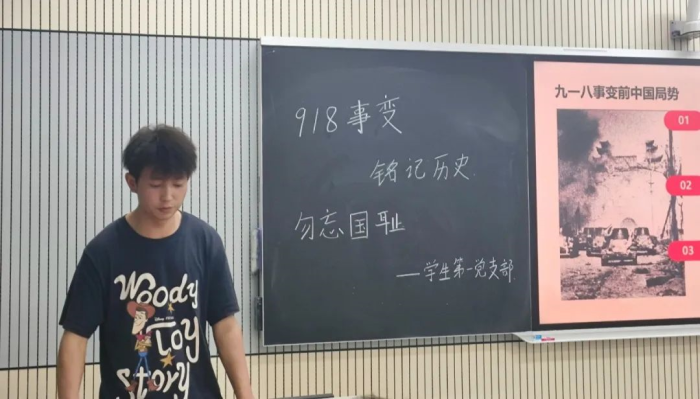 918事变
铭记历史
勿忘国耻
——学生第一党支部
九一八事变前中国局势
01
02
03
Woody
DISNEY PIXAR
Toy
Story